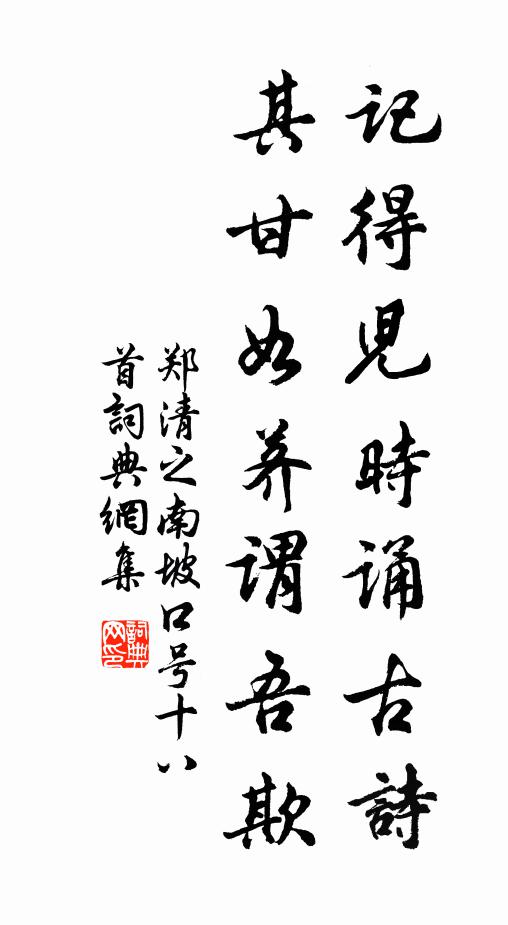 记得児時诵古詩
其甘如荠谓吾欺
郑清之南坡口号十八
首詞典網集
詞典网印